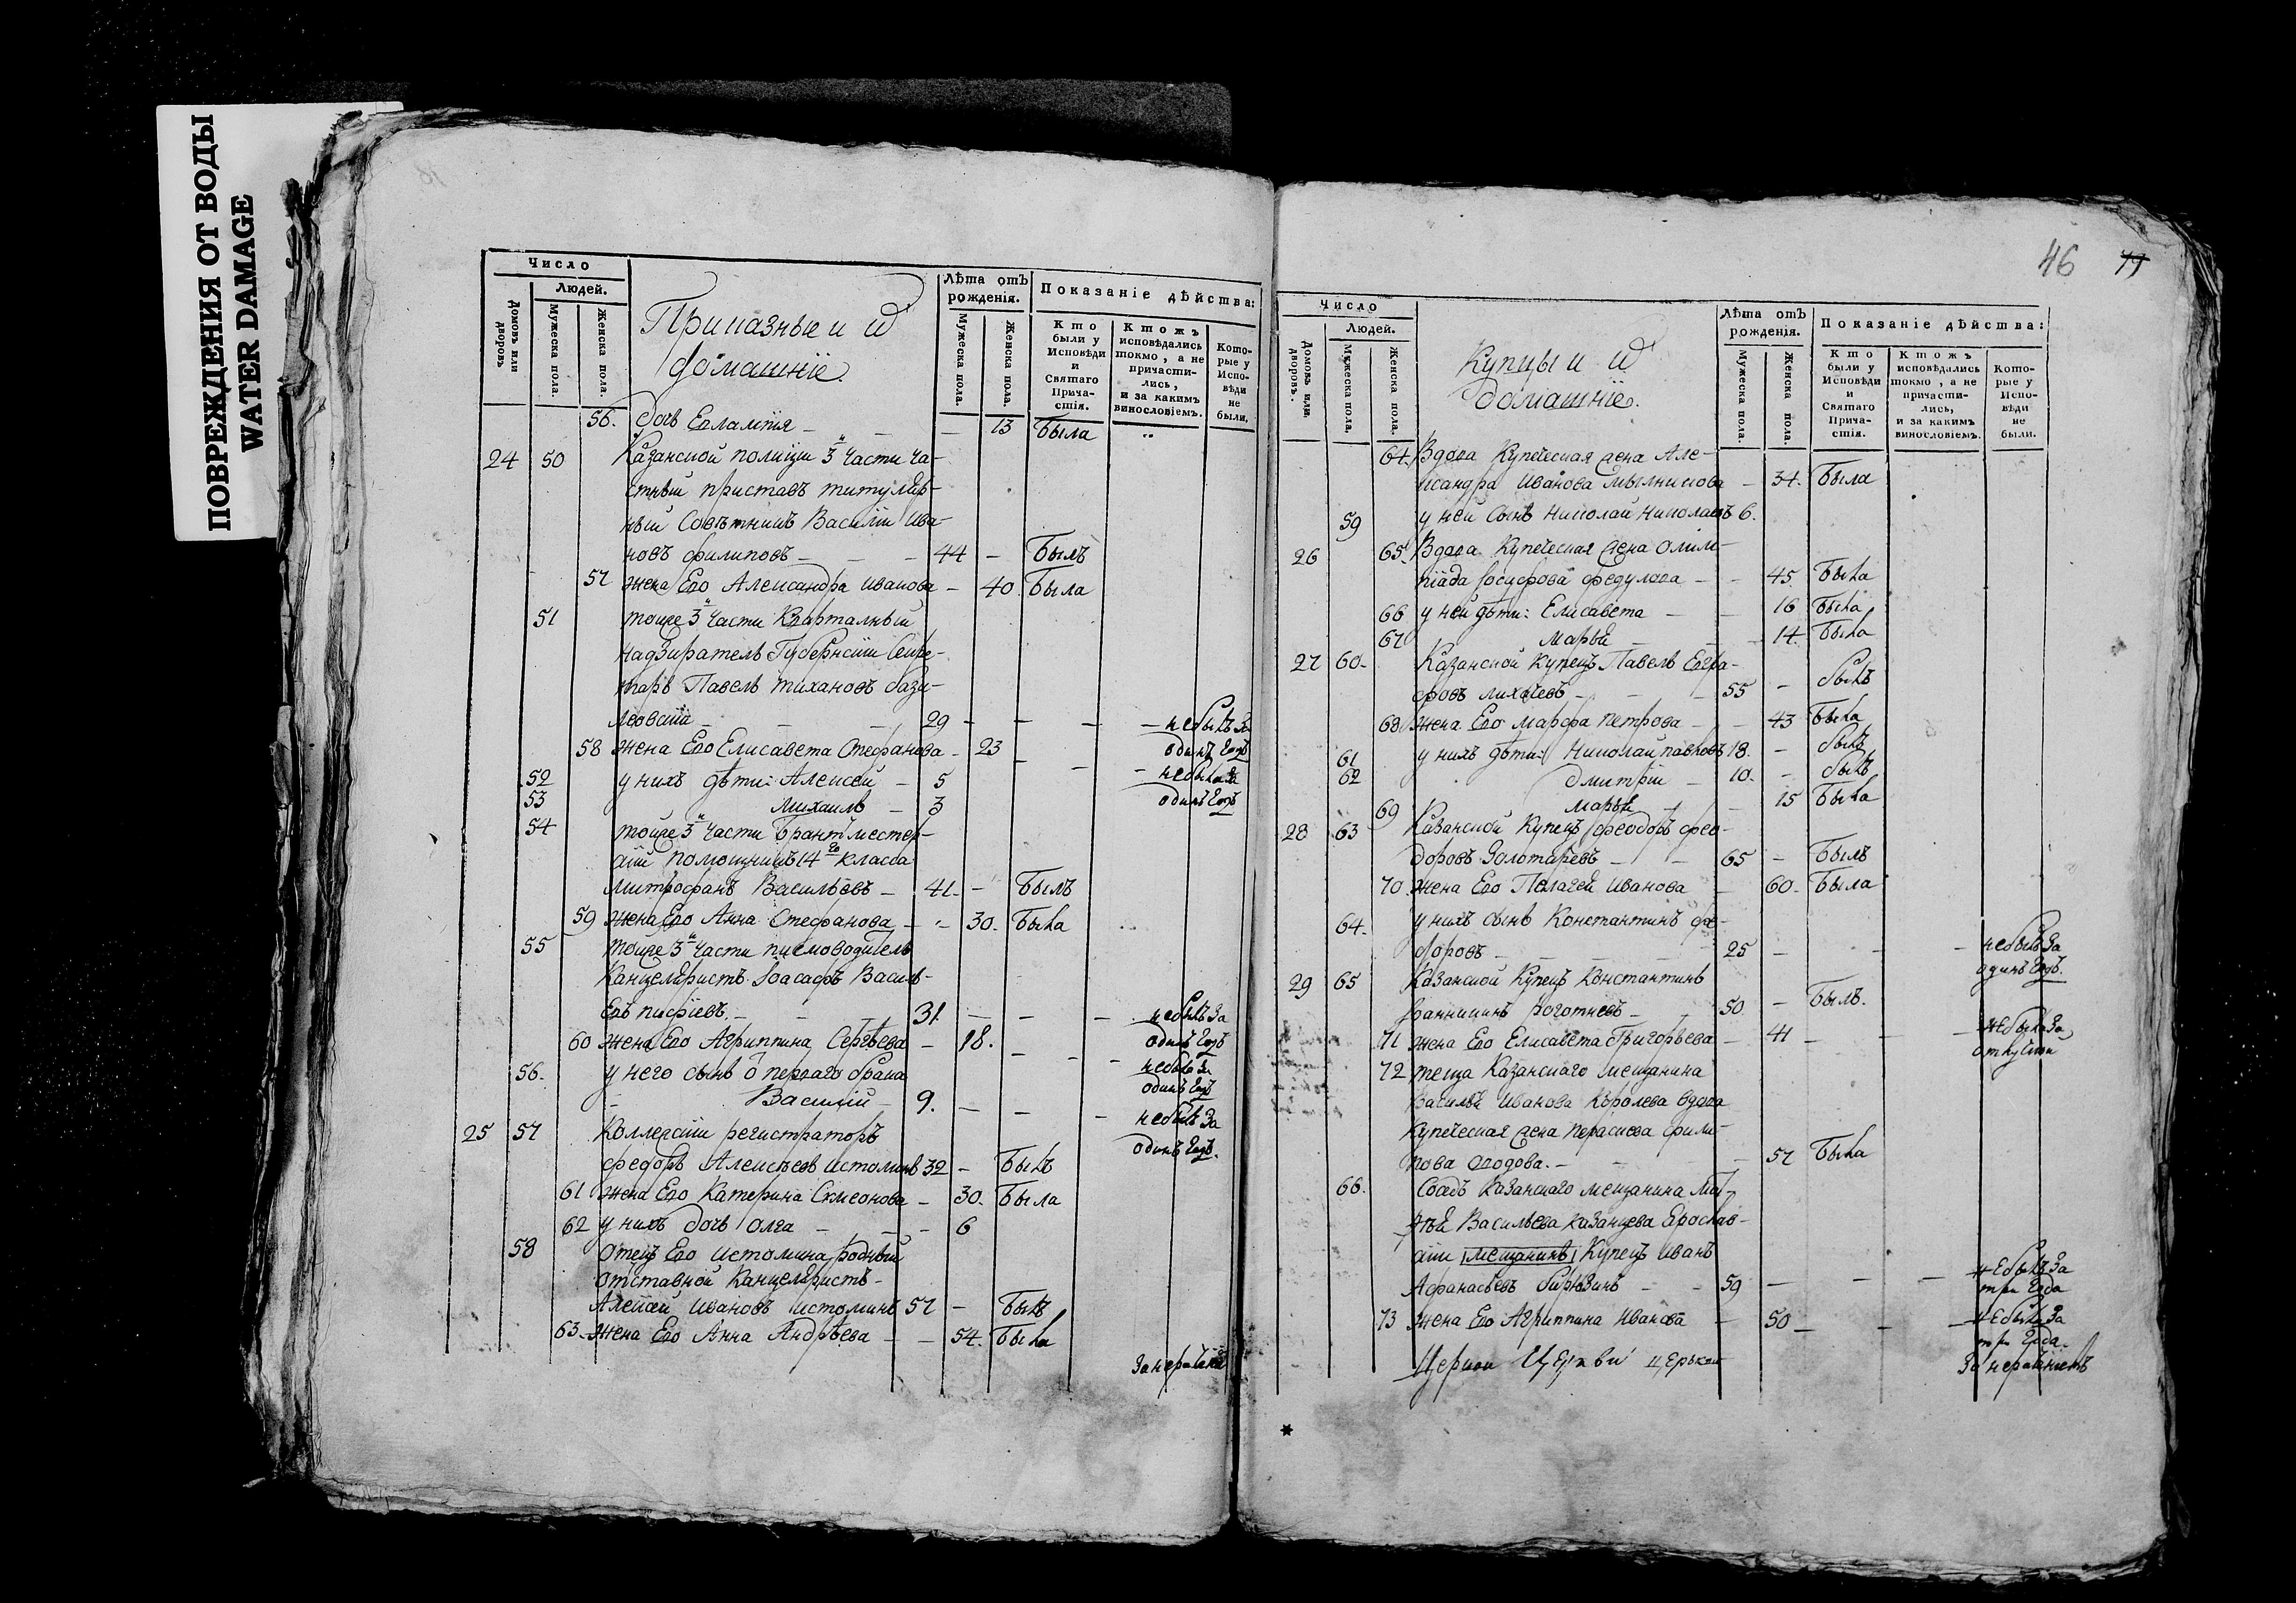 ПОВРЕЖДЕНИЯ ОТ ВОДЫ
WATER DAMAGE
Число
Людей.
Домовъ или дворовъ.
Мужеска пола.
Женска пола.
Приказные и
домашніе.
Лѣта отъ рожденія.
Мужеска пола.
Женска пола.
Показаніе дѣйства:
Кто были у Исповѣди и Святаго Причастія.
Ктожъ исповѣдались токмо, а не причастились, и за какимъ винословіемъ.
Которые у Исповѣди не были.
56. дочь Евлампія – – – 13 Была
24 50 Казанской полиціи 3й части ча-
стный приставъ титуляр-
ный Совѣтникъ Василій Ива-
новъ филиповъ – – – 44 – Былъ
57 жена Его Александра иванова – 40 Была
51 тойже 3й части Квартальный
надзиратель Губернскій Секре-
тарь Павелъ тихановъ
29 – – – – небылъ За
одинъ Годъ
58 жена Его Елисавета Стефанова – 23 – – – небыла За
одинъ Годъ
52 у нихъ дѣти: Алексей – 5
53 Михаилъ – 3
54 тойже 3й части Брантмейстер-
скій помощникъ 14го класса
митрофанъ Васильевъ – 41. – Былъ
59 жена Его Анна Стефанова – – 30. Была
55 тойже 3й части писмоводитель
Канцеляристъ Іоасафъ Василь-
Евъ – – 31 – – – небылъ За
одинъ Годъ
60 жена Его Агриппина Сергѣева – 18. – – – небыла За
одинъ Годъ
56. у него сынъ ѿ перваго брака
Василій – 9. – – – небылъ За
одинъ Годъ.
25 57 Коллегскій регистраторъ
федоръ Алексѣевъ истоминъ 32 – Былъ
61 жена Его Катерина Симеонова – 30. Была
62 у нихъ дочь Олга – – – 6
58 Отецъ Его истомина родный
отставной Канцеляристъ –
Алексѣй Ивановъ истоминъ 57 – Былъ
63. жена Его Анна Андрѣева – – 54. Была
46 77
Число
Людей.
Домовъ или дворовъ.
Мужеска пола.
Женска пола.
Купцы и
домашніе.
Лѣта отъ рожденія.
Мужеска пола.
Женска пола.
Показаніе дѣйства:
Кто были у Исповѣди и Святаго Причастія.
Ктожъ исповѣдались токмо, а не причастились, и за какимъ винословіемъ.
Которые у Исповѣди не были.
64. Вдова Купеческая жена Але-
ксандра Иванова Мыльникова – 34. Была
59 у ней Сынъ Николай Николаевъ 6.
26 65. Вдова Купеческая жена Олим-
піада Іосифова федулова – – 45. Была
66 у ней дѣти: Елисавета – – 16 Была
67 Марья – – 14. Была
27 60. Казанской купецъ Павелъ Евгра-
фовъ лихачевъ – – – 55 – былъ
68. жена Его марфа петрова – – 43 Была
61 у нихъ дѣти: Николай павловъ 18. – былъ
62 дмитрій – 10. – былъ
69 Марья – – 15 Была
28 63 Казанской Купецъ феодоръ фео-
доровъ Золотаревъ – – 65 – Былъ
70. жена Его Пелагея Иванова – 60. Была
64. у нихъ сынъ Константинъ фе-
доровъ – – – – 25 – – – – небылъ За
одинъ Годъ.
29 65 Казанской Купецъ Константинъ
– 50 – Былъ.
71 жена Его Елисавета Григорьева – 41 – – – небыла За
72 теща Казанскаго мещанина
Василья Иванова Королева вдова
Купеческая жена Параскева фили-
пова – – – – 57 Была
66. Сосѣдъ Казанскаго мещанина Мат-
фѣя Васильева Казанцева Ярослав-
скій мещанинъ Купецъ Иванъ
Афанасьевъ – – 59 – – – небылъ За
три Года
73 жена Его Агриппина Иванова – 50 – – – небыла За
три Года.
*